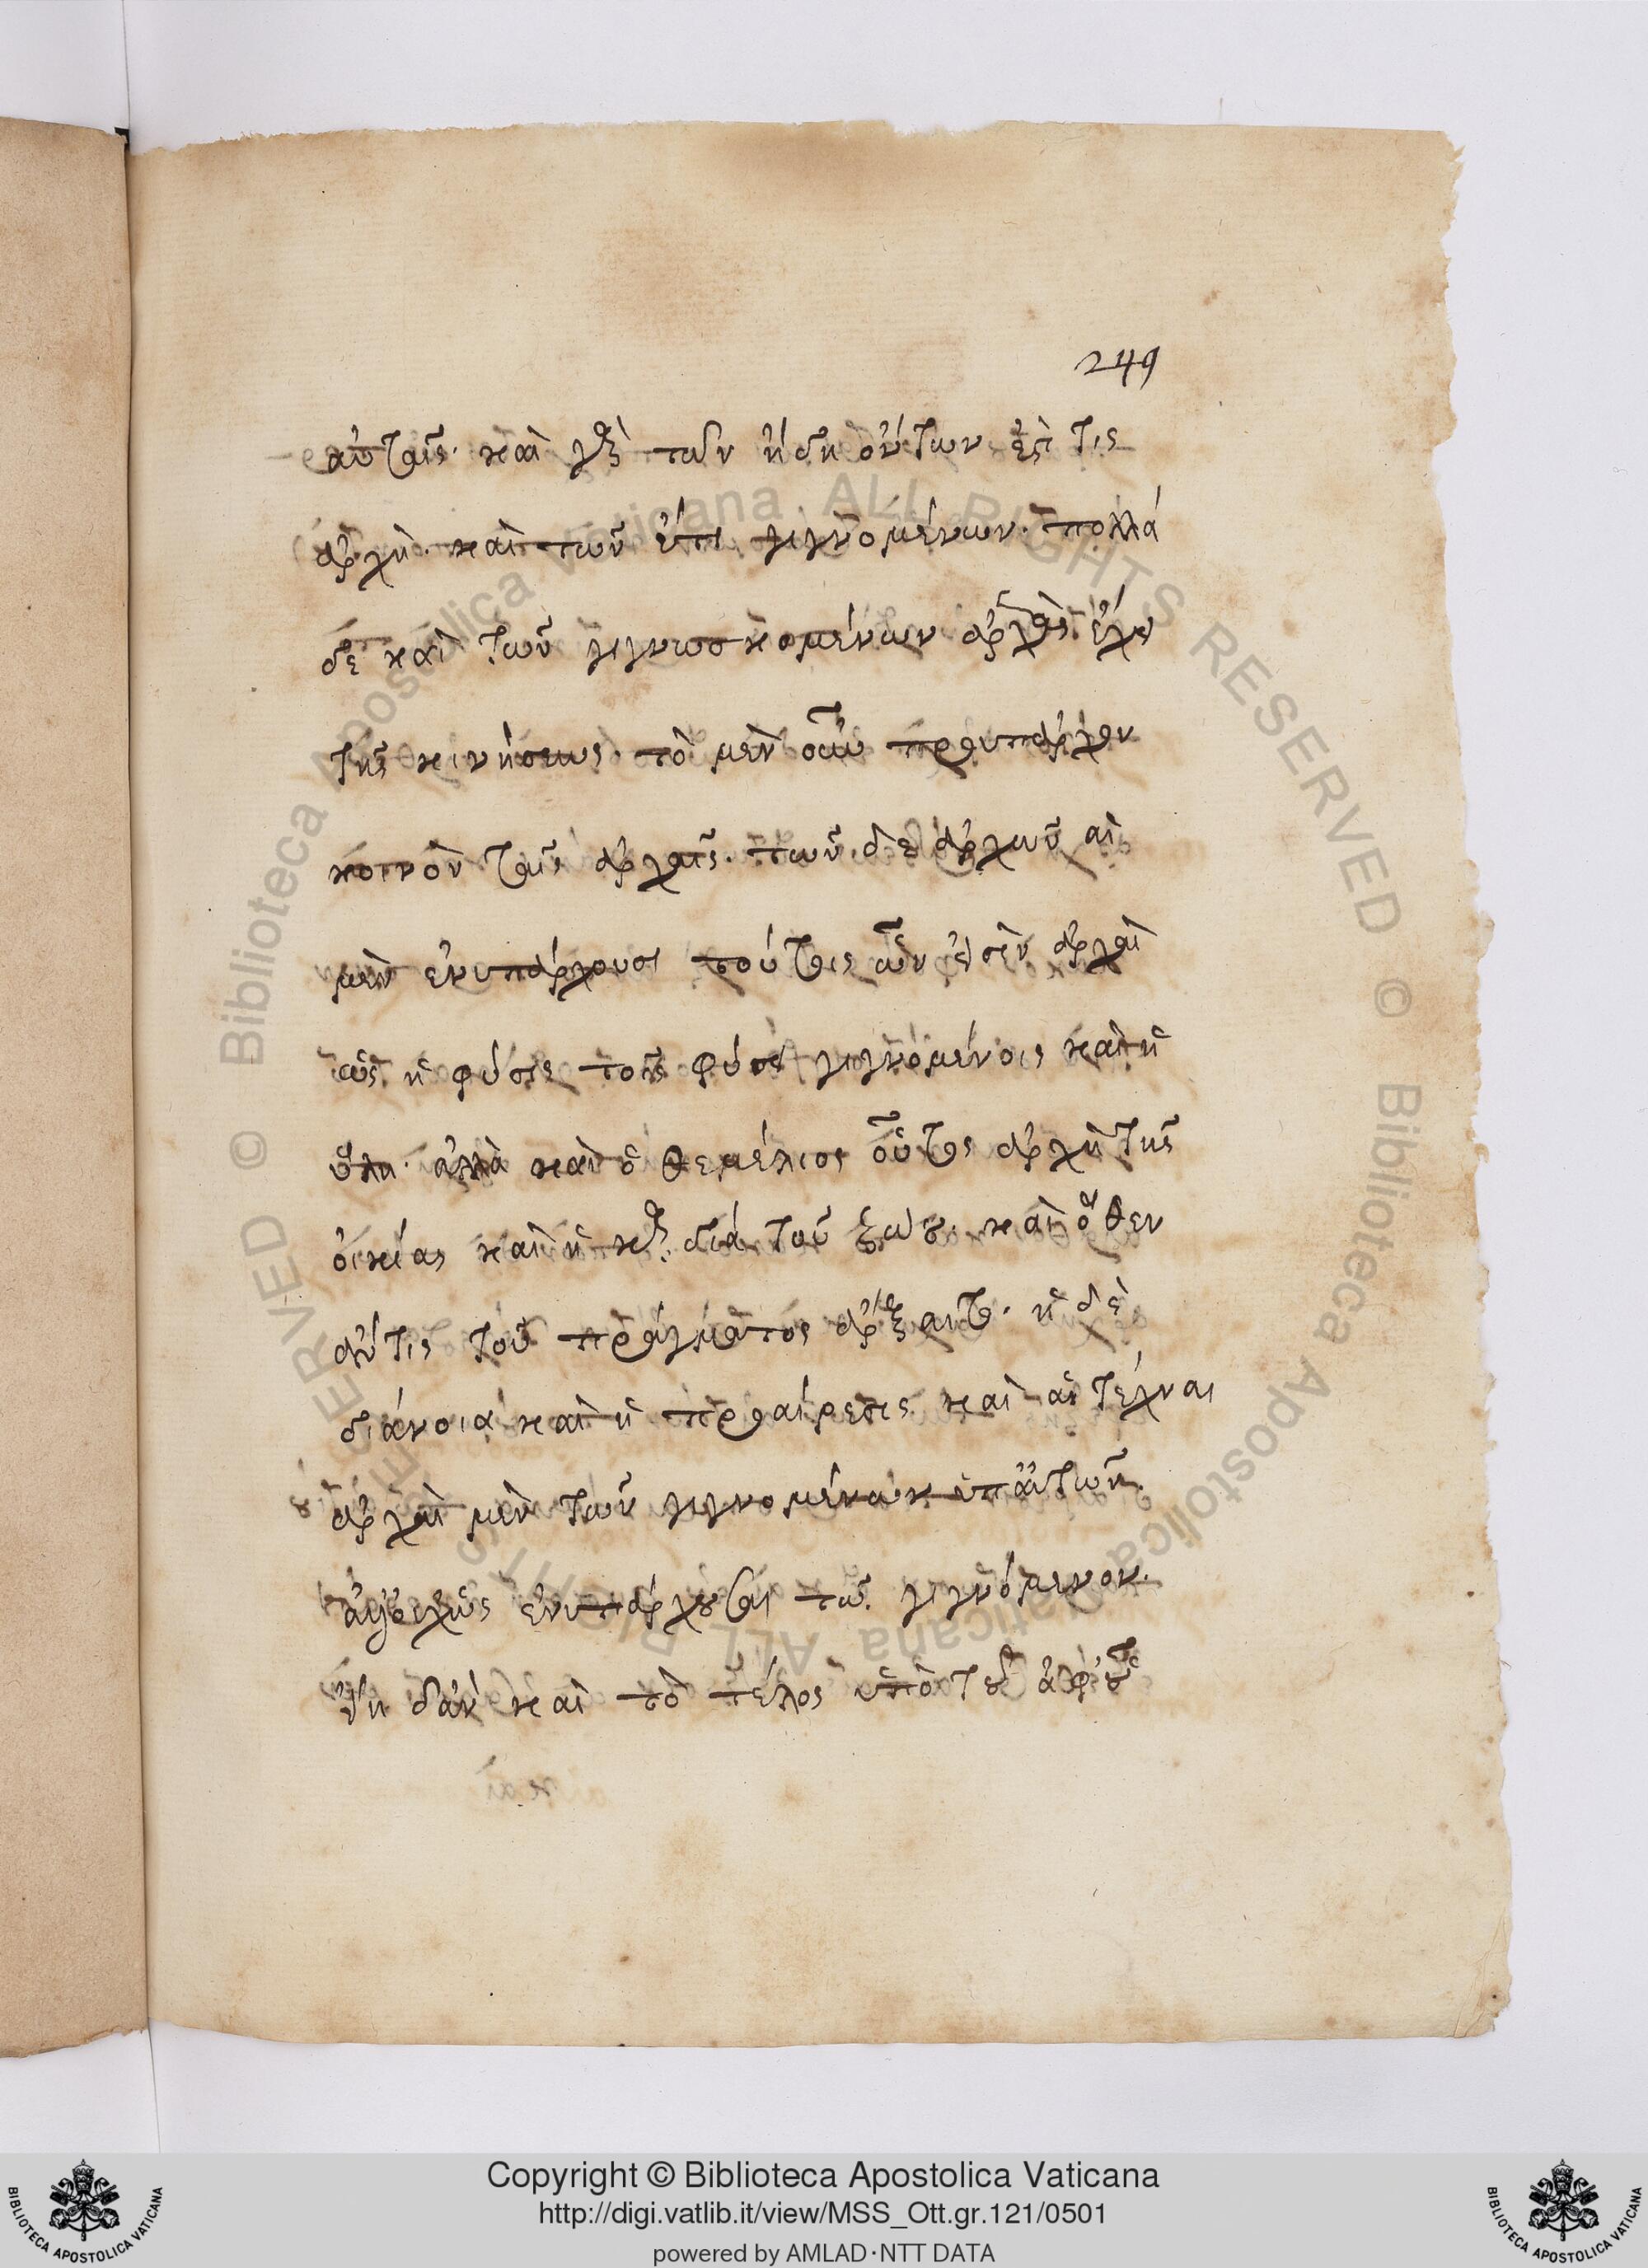 249
αὐταῖς· καὶ γὰρ τῶν ἤδη ὄντων ἐστί τις
ἀρχὴ· καὶ τῶν ἔτι γιγνομένων· πολλά
δὲ καὶ τῶν γιγνωσκομένων ἀρχὰς ἔχει
τῆς κινήσεως· τὸ μὲν οὖν προυπάρχειν
κοινὸν ταῖς ἀρχαῖς· τῶν δὲ ἀρχῶν αἱ
μὲν ἐνυπάρχουσι τούτοις ὧν εἰσὶν ἀρχαὶ
ὡς ἡ φύσις τοῖς φύσει γιγνομένοις καὶ ἡ
ὕλη· ἀλλὰ καὶ ὁ θεμέλιος οὗτος ἀρχὴ τῆς
οἰκίας καὶ ἡ καρδία τοῦ ζώου· καὶ ὅθεν
ἄν τις τοῦ πράγματος ἄρξαιτο· ἡ δὲ
διάνοια καὶ ἡ προαίρεσις καὶ αἱ τέχναι
ἀρχαὶ μὲν τῶν γιγνομένων ὑπ' αὐτῶν
ἐνυπάρχουσαι τῶ γιγνόμενον·
εἴη δ' ἂν καὶ τὸ τέλος ὑπὸ τοῦ ἀφ' οὗ
Copyright © Biblioteca Apostolica Vaticana
http://digi.vatlib.it/view/MSS_Ott.gr.121/0501
powered by AMLAD·NTT DATA
BIBLIOTECA APOSTOLICA VATICANA
BIBLIOTECA APOSTOLICA VATICANA
© Biblioteca Apostolica Vaticana ALL RIGHTS RESERVED © Biblioteca Apostolica Vaticana ALL RIGHTS RESERVED